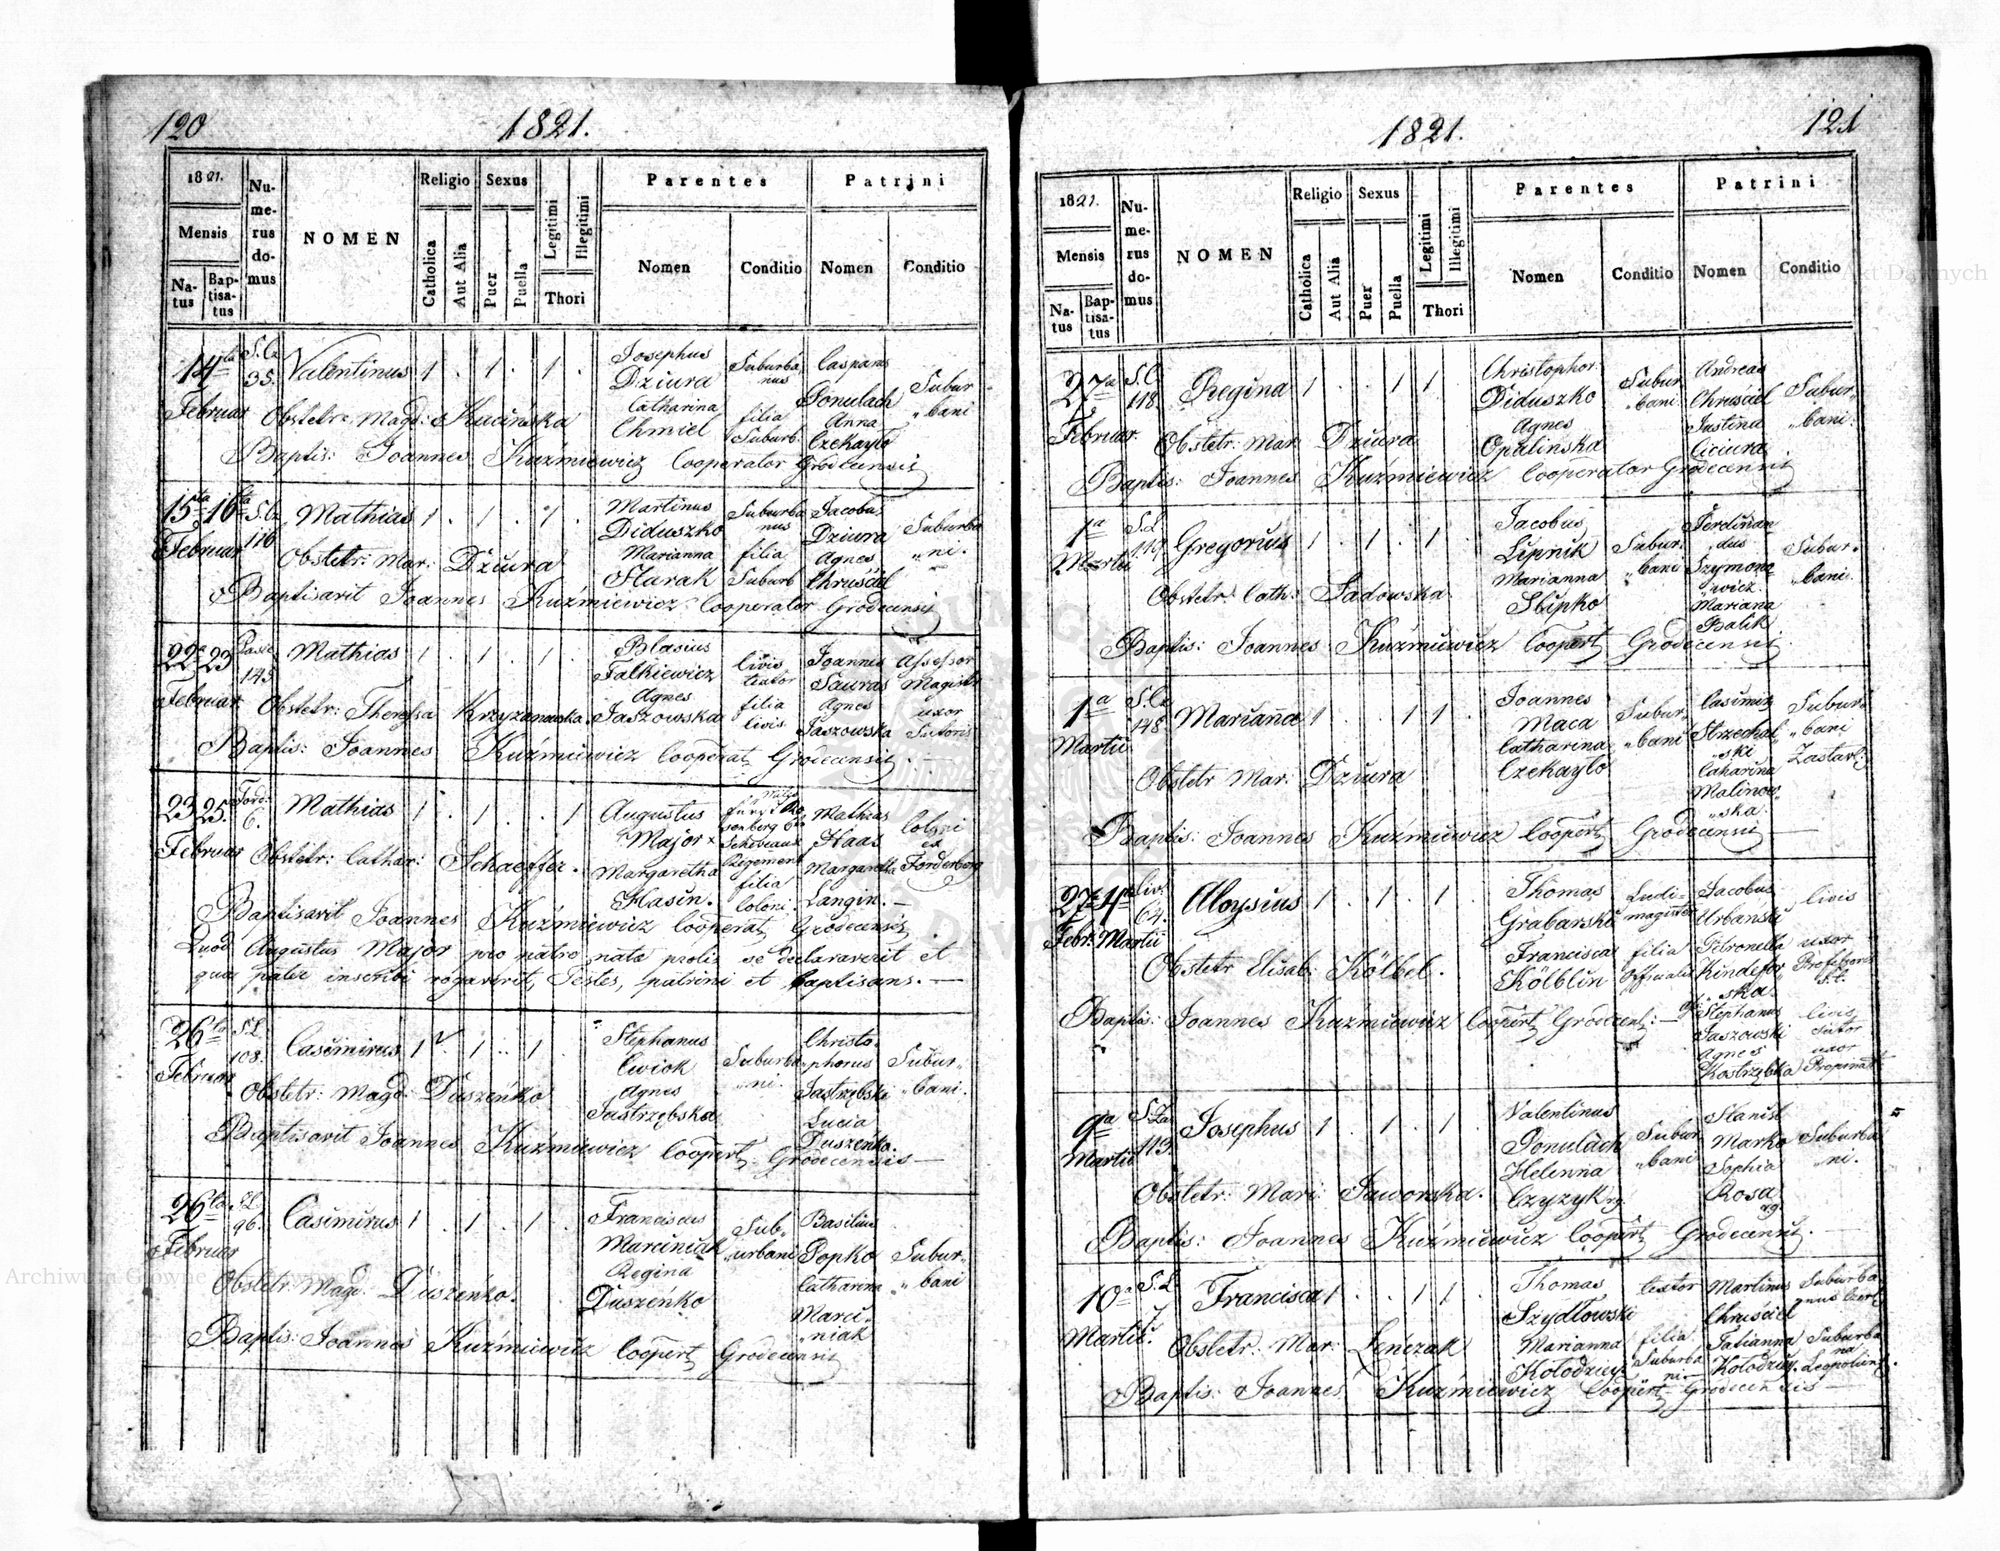 120
1821.
1821.
Mensis
Natus
Baptisatus
Numerus domus
NOMEN
Religio
Catholica
Aut Alia
Sexus
Puer
Puella
Legitimi
Illegitimi
Thori
Parentes
Nomen
Conditio
Patrini
Nomen
Conditio
14ta Februar
35.
Valentinus
1 . 1 . 1 .
Josephus
Dziura
Catharina
Chmiel
Suburba
nus
filia
Suburb.
Ponulach
Anna
Czekayło
Subur
"bani
Obstetr: Magd: Kucińska
Baptis: Joannes Kuźmiewicz Cooperator Grodecensis
15ta 16ta Februar
116
Mathias
1 . 1 . 1 .
Martinus
Diduszko
Marianna
Harak
Suburba
nus
filia
Suburb
Jacobus
Dziura
Agnes
Chruściel
Suburba
"ni.
Obstetr: Mar: Dziura
Baptisavit Joannes Kuźmiewicz Cooperator Grodecensis
22 23 Februar
143
Mathias
1 . 1 . 1 .
Blasius
Falkiewicz
Agnes
Jaszowska
Civis
textor
filia
Civis
Joannes
Sauras
Agnes
Jaszowska
Assessor
Magistr
uxor
Sutoris
Obstetr: Theressa Krzyzanowska.
Baptis: Joannes Kuźmiewicz Cooperat Grodecensis
23 25. Februar
6.
Mathias
1 . 1 . . 1
Augustus
Major
Margaretha
Hasin.
Regement
filia
Coloni
Mathias
Haas
Margaretha
Langin.
Coloni
ex
Forderberg
Obstetr: Cathar: Schaeffer.
Baptisavit Joannes Kuźmiewicz Cooperat Grodecensis.
Quod Augustus Major pro patre nata prolis se declaraverit et
qua pater inscribi rogaverit, Testes, patrini et baptisans.
26ta Februar
108.
Casimirus
Stephanus
Cwiok
Agnes
Jastrzębska
Suburba
"ni.
Christo
phorus
Jastrzębski
Lucia
Duszeńko.
Subur
"bani.
Obstetr: Magd: Duszeńko
Baptisavit Joannes Kuźmiewicz Coopert Grodecensis
26ta Februar
96.
Casimirus
1 . 1 . 1 .
Franciscus
Marciniak
Regina
Duszeńko
Sub
urbani
Basilius
Popko
Catharina
Marci
"niak
Subur
"bani
Obstetr: Magd: Duszeńko.
Baptis: Joannes Kuźmiewicz Coopert Grodecensis
121
1821.
1821.
Mensis
Natus
Baptisatus
Numerus domus
NOMEN
Religio
Catholica
Aut Alia
Sexus
Puer
Puella
Legitimi
Illegitimi
Thori
Parentes
Nomen
Conditio
Patrini
Nomen
Conditio
27a Februar.
118.
Regina
1 . . 1 1 .
Christophor
Diduszko
Agnes
Opalinska
Subur
"bani
Andreas
Chruściel
Justina
Ciciura
Subur
"bani.
Obstetr: Mar: Dziura
Baptis: Joannes Kuźmiewicz Cooperator Grodecensis
1a Martii
119
Gregorius
1 . 1 . 1 .
Jacobus
Lipnik
Marianna
Slipko
Subur
"bani
Ferdinan
dus
Szymono
"wicz.
Mariana
Balik
Subur
"bani.
Obstetr: Cath: Sadowska
Baptis: Joannes Kuźmiewicz Coopert Grodecensis
1a Martii
148
Marianna
1 . . 1 1 .
Joannes
Maca
Catharina
Czekayło
Subur
"bani
Casimir
Strzechal
"ski
Catharina
Malinow
"ska
Subur
"bani
Zastaw:
Obstetr Mar: Dziura
Baptis: Joannes Kuźmiewicz Coopert Grodecensis
27 4 Febr: Martii
Civ.
64.
Aloysius
1 . 1 . 1 .
Thomas
Grabarski
Francisca
Kölblin
Ludi
magister
filia
Officialis
Jacobus
Urbanski
Petronella
Kindefor
"ska
Civis
uxor
Professoris
Stephanus
Jaszowski
Agnes
Kostrzębka
Civis
Sutor
uxor
Propinat
Obstetr Elisab: Kölbel.
Baptis: Joannes Kuźmiewicz Coopert Grodecens:
9a Martii
113.
Josephus
1 . 1 . 1 .
Valentinus
Ponulach
Helenna
Czyzyk
Subur
"bani
Stanisl
Marko
Sophia
Rosa
Suburba
"ni.
Obstetr: Mari: Jaworska.
Baptis: Joannes Kuźmiewicz Coopert Grodecensis.
10a Martii.
7
Francisca
1 . . 1 1 .
Thomas
Szydłowski
Marianna
Kołodziey
textor
filia
Suburba
ni
Martinus
Chruściel
Tatianna
Kołodziey
Suburba
Suburba
na
Obstetr: Mar: Leńczak
Baptis: Joannes Kuźmiewicz Coopert Grodecensis